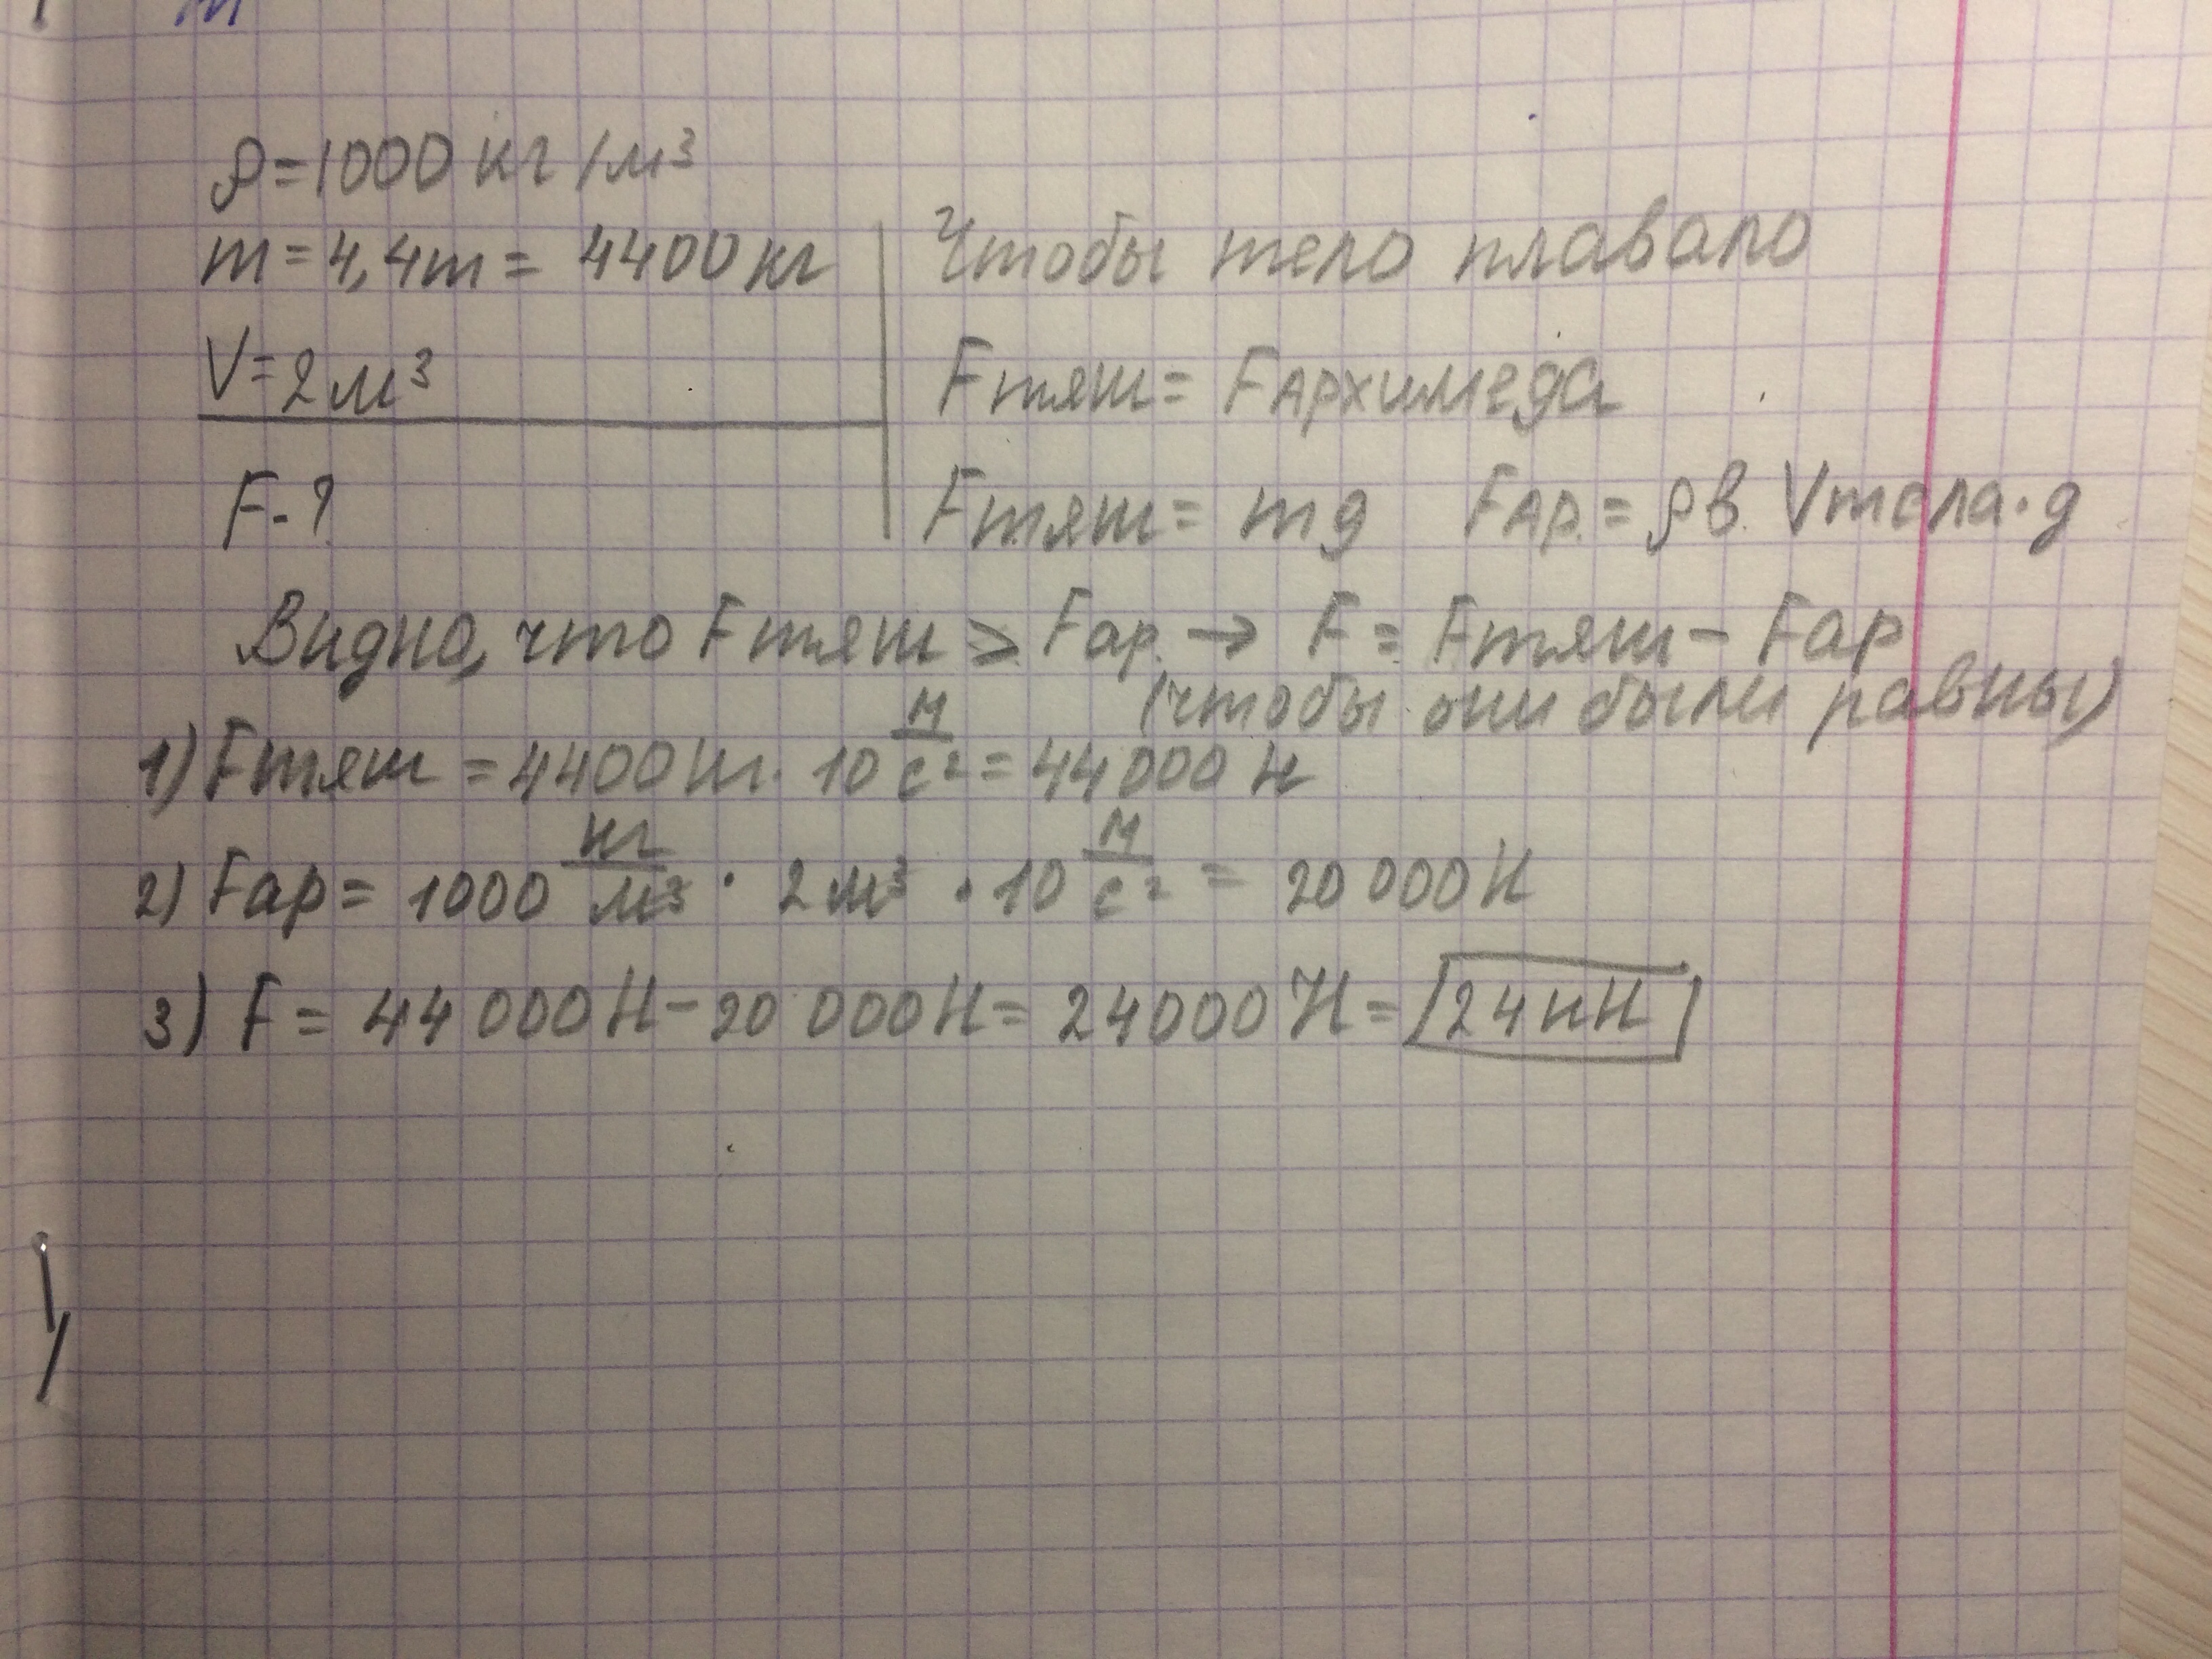 ρ=1000 кг/м³
m=4,4т= 4400кг
V=2м³
F-?
Чтобы тело плавало
Fтяж= FАрхимеда
Fтяж= mg FАр= ρв Vтела·g
Видно, что Fтяж > Fар → F= Fтяж- Fар
(чтобы они были равны)
1) Fтяж = 4400кг·10 м/с²=44 000 Н
2) Fар= 1000 кг/м³ · 2м³ · 10 м/с² = 20 000Н
3) F = 44 000Н-20 000Н= 24000Н= 24кН